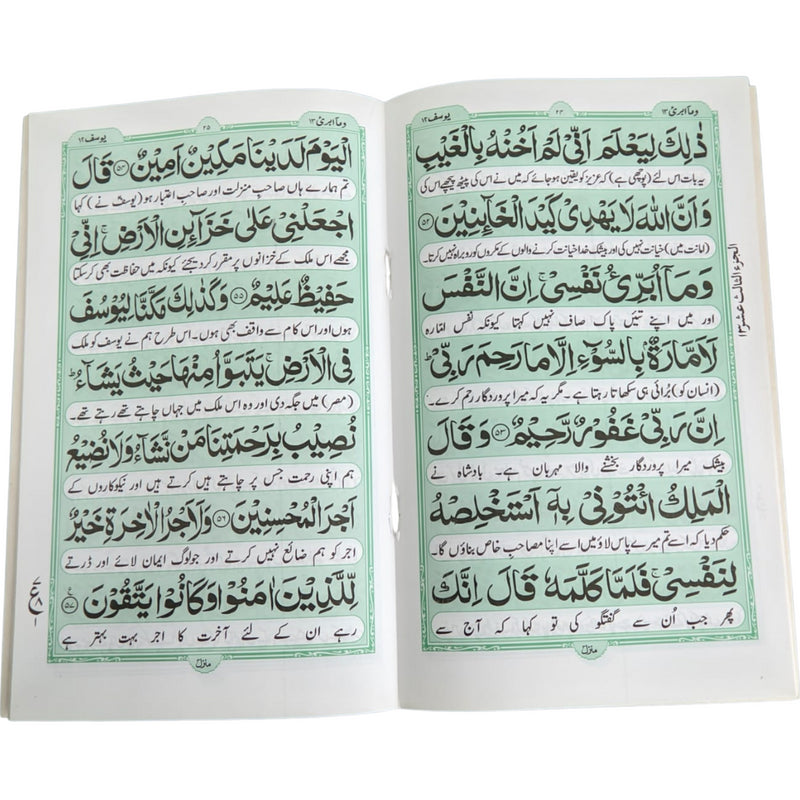 یوسف ۱۲
۲۴
وما ابرئ ۱۳
ذٰلِكَ لِيَعْلَمَ اَنِّىْ لَمْ اَخُنْهُ بِالْغَيْبِ
یہ بات اس لئے (پوچھی ہے) کہ عزیز کو یقین ہو جائے کہ میں نے اس کی پیٹھ پیچھے اس کی
وَاَنَّ اللّٰهَ لَا يَهْدِىْ كَيْدَ الْخَآئِنِيْنَ ۵۲
(امانت میں) خیانت نہیں کی اور بیشک خدا خیانت کرنے والوں کے مکروں کو روبراہ نہیں کرتا۔
وَمَاۤ اُبَرِّئُ نَفْسِىْ ۚ اِنَّ النَّفْسَ
اور میں اپنے تئیں پاک صاف نہیں کہتا کیونکہ نفس امّارہ
لَاَمَّارَةٌۢ بِالسُّوْٓءِ اِلَّا مَا رَحِمَ رَبِّىْ ؕ
(انسان کو) بُرائی ہی سکھاتا رہتا ہے۔ مگر یہ کہ میرا پروردگار رحم کرے۔
اِنَّ رَبِّىْ غَفُوْرٌ رَّحِيْمٌ ۵۳ وَقَالَ
بیشک میرا پروردگار بخشنے والا مہربان ہے۔ بادشاہ نے
الْمَلِكُ ائْتُوْنِىْ بِهٖۤ اَسْتَخْلِصْهُ
حکم دیا کہ اسے تم میرے پاس لاؤ میں اسے اپنا مصاحب خاص بناؤں گا۔
لِنَفْسِىْ ۚ فَلَمَّا كَلَّمَهٗ قَالَ اِنَّكَ
پھر جب اُن سے گفتگو کی تو کہا کہ آج سے
منزل ۳
الجزء الثالث عشر ۱۳
یوسف ۱۲
۲۵
وما ابرئ ۱۳
الْيَوْمَ لَدَيْنَا مَكِيْنٌ اَمِيْنٌ ۵۴ قَالَ
تم ہمارے ہاں صاحبِ منزلت اور صاحبِ اعتبار ہو (یوسف نے) کہا
اجْعَلْنِىْ عَلٰى خَزَآئِنِ الْاَرْضِ ۚ اِنِّىْ
مجھے اس ملک کے خزانوں پر مقرر کر دیجئے کیونکہ میں حفاظت بھی کر سکتا
حَفِيْظٌ عَلِيْمٌ ۵۵ وَكَذٰلِكَ مَكَّنَّا لِيُوْسُفَ
ہوں اور اس کام سے واقف بھی ہوں۔ اس طرح ہم نے یوسف کو ملک
فِى الْاَرْضِ ۚ يَتَبَوَّاُ مِنْهَا حَيْثُ يَشَآءُ ؕ
(مصر) میں جگہ دی اور وہ اس ملک میں جہاں چاہتے تھے رہتے تھے۔
نُصِيْبُ بِرَحْمَتِنَا مَنْ نَّشَآءُ وَلَا نُضِيْعُ
ہم اپنی رحمت جس پر چاہتے ہیں کرتے ہیں اور نیکوکاروں کے
اَجْرَ الْمُحْسِنِيْنَ ۵۶ وَلَاَجْرُ الْاٰخِرَةِ خَيْرٌ
اجر کو ہم ضائع نہیں کرتے اور جو لوگ ایمان لائے اور ڈرتے
لِّلَّذِيْنَ اٰمَنُوْا وَكَانُوْا يَتَّقُوْنَ ۵۷
رہے ان کے لئے آخرت کا اجر بہت بہتر ہے
منزل ۳